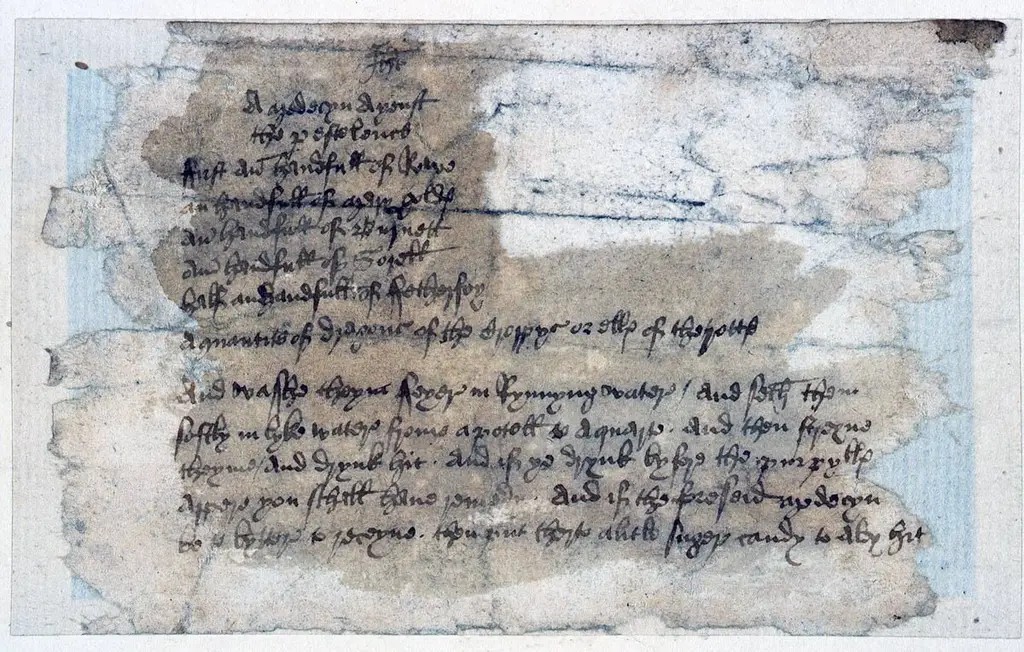 Ihc
A medecyn Agenst
the pestelence
ffirst an handfull of Rewe
an handfull of mary goldes
an handfull of Burnett
an handfull of Sorell
half an handfull of ffetherfoy
A quantite of dragons of the croppe or elles of the rotts
And wasshe theym feyer in Rynnyng water / And seth them
softly in lyke water frome a potell to a quarte . And then streyne
theyme And drynk hit . And if ye drynk hit byfore the purpylles
Appere you shall have remedy . And if the foreseid medecyn
be to bytter to receyve . then put therto a litle suger candy to Alay hit